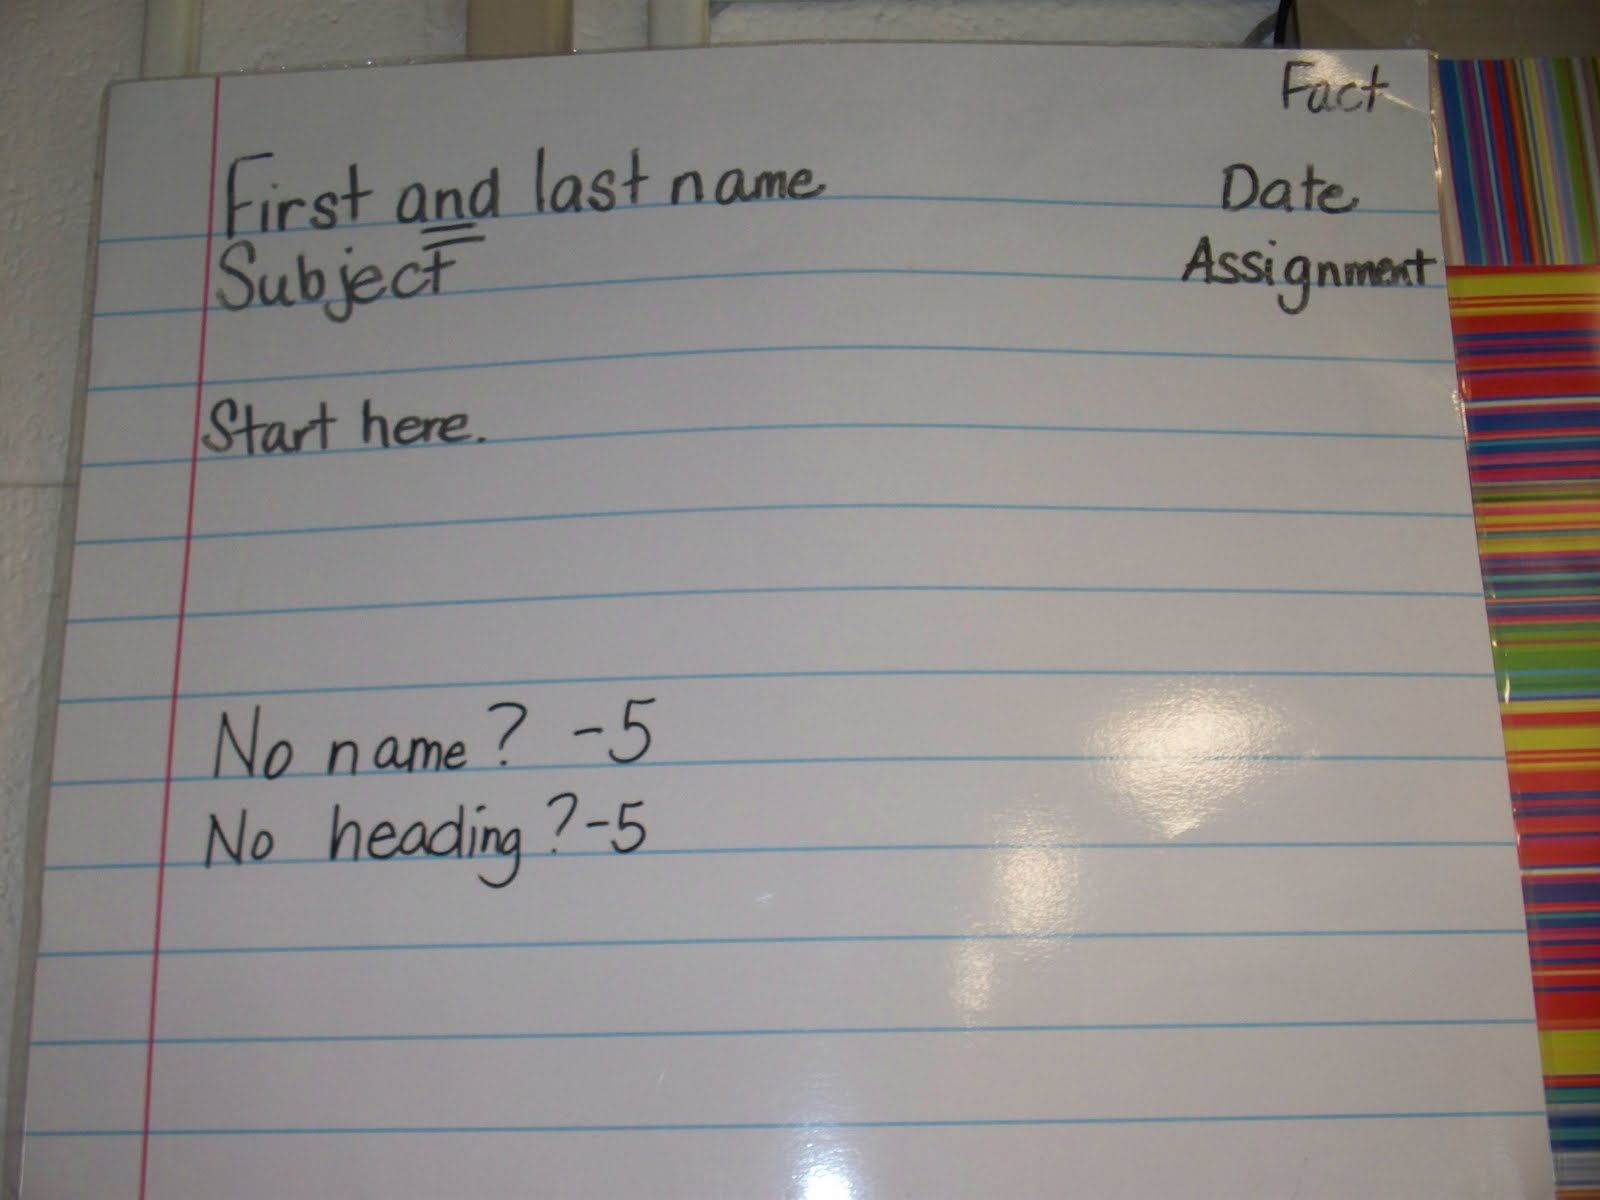 Fact
First and last name Date
Subject Assignment
Start here.
No name? -5
No heading? -5